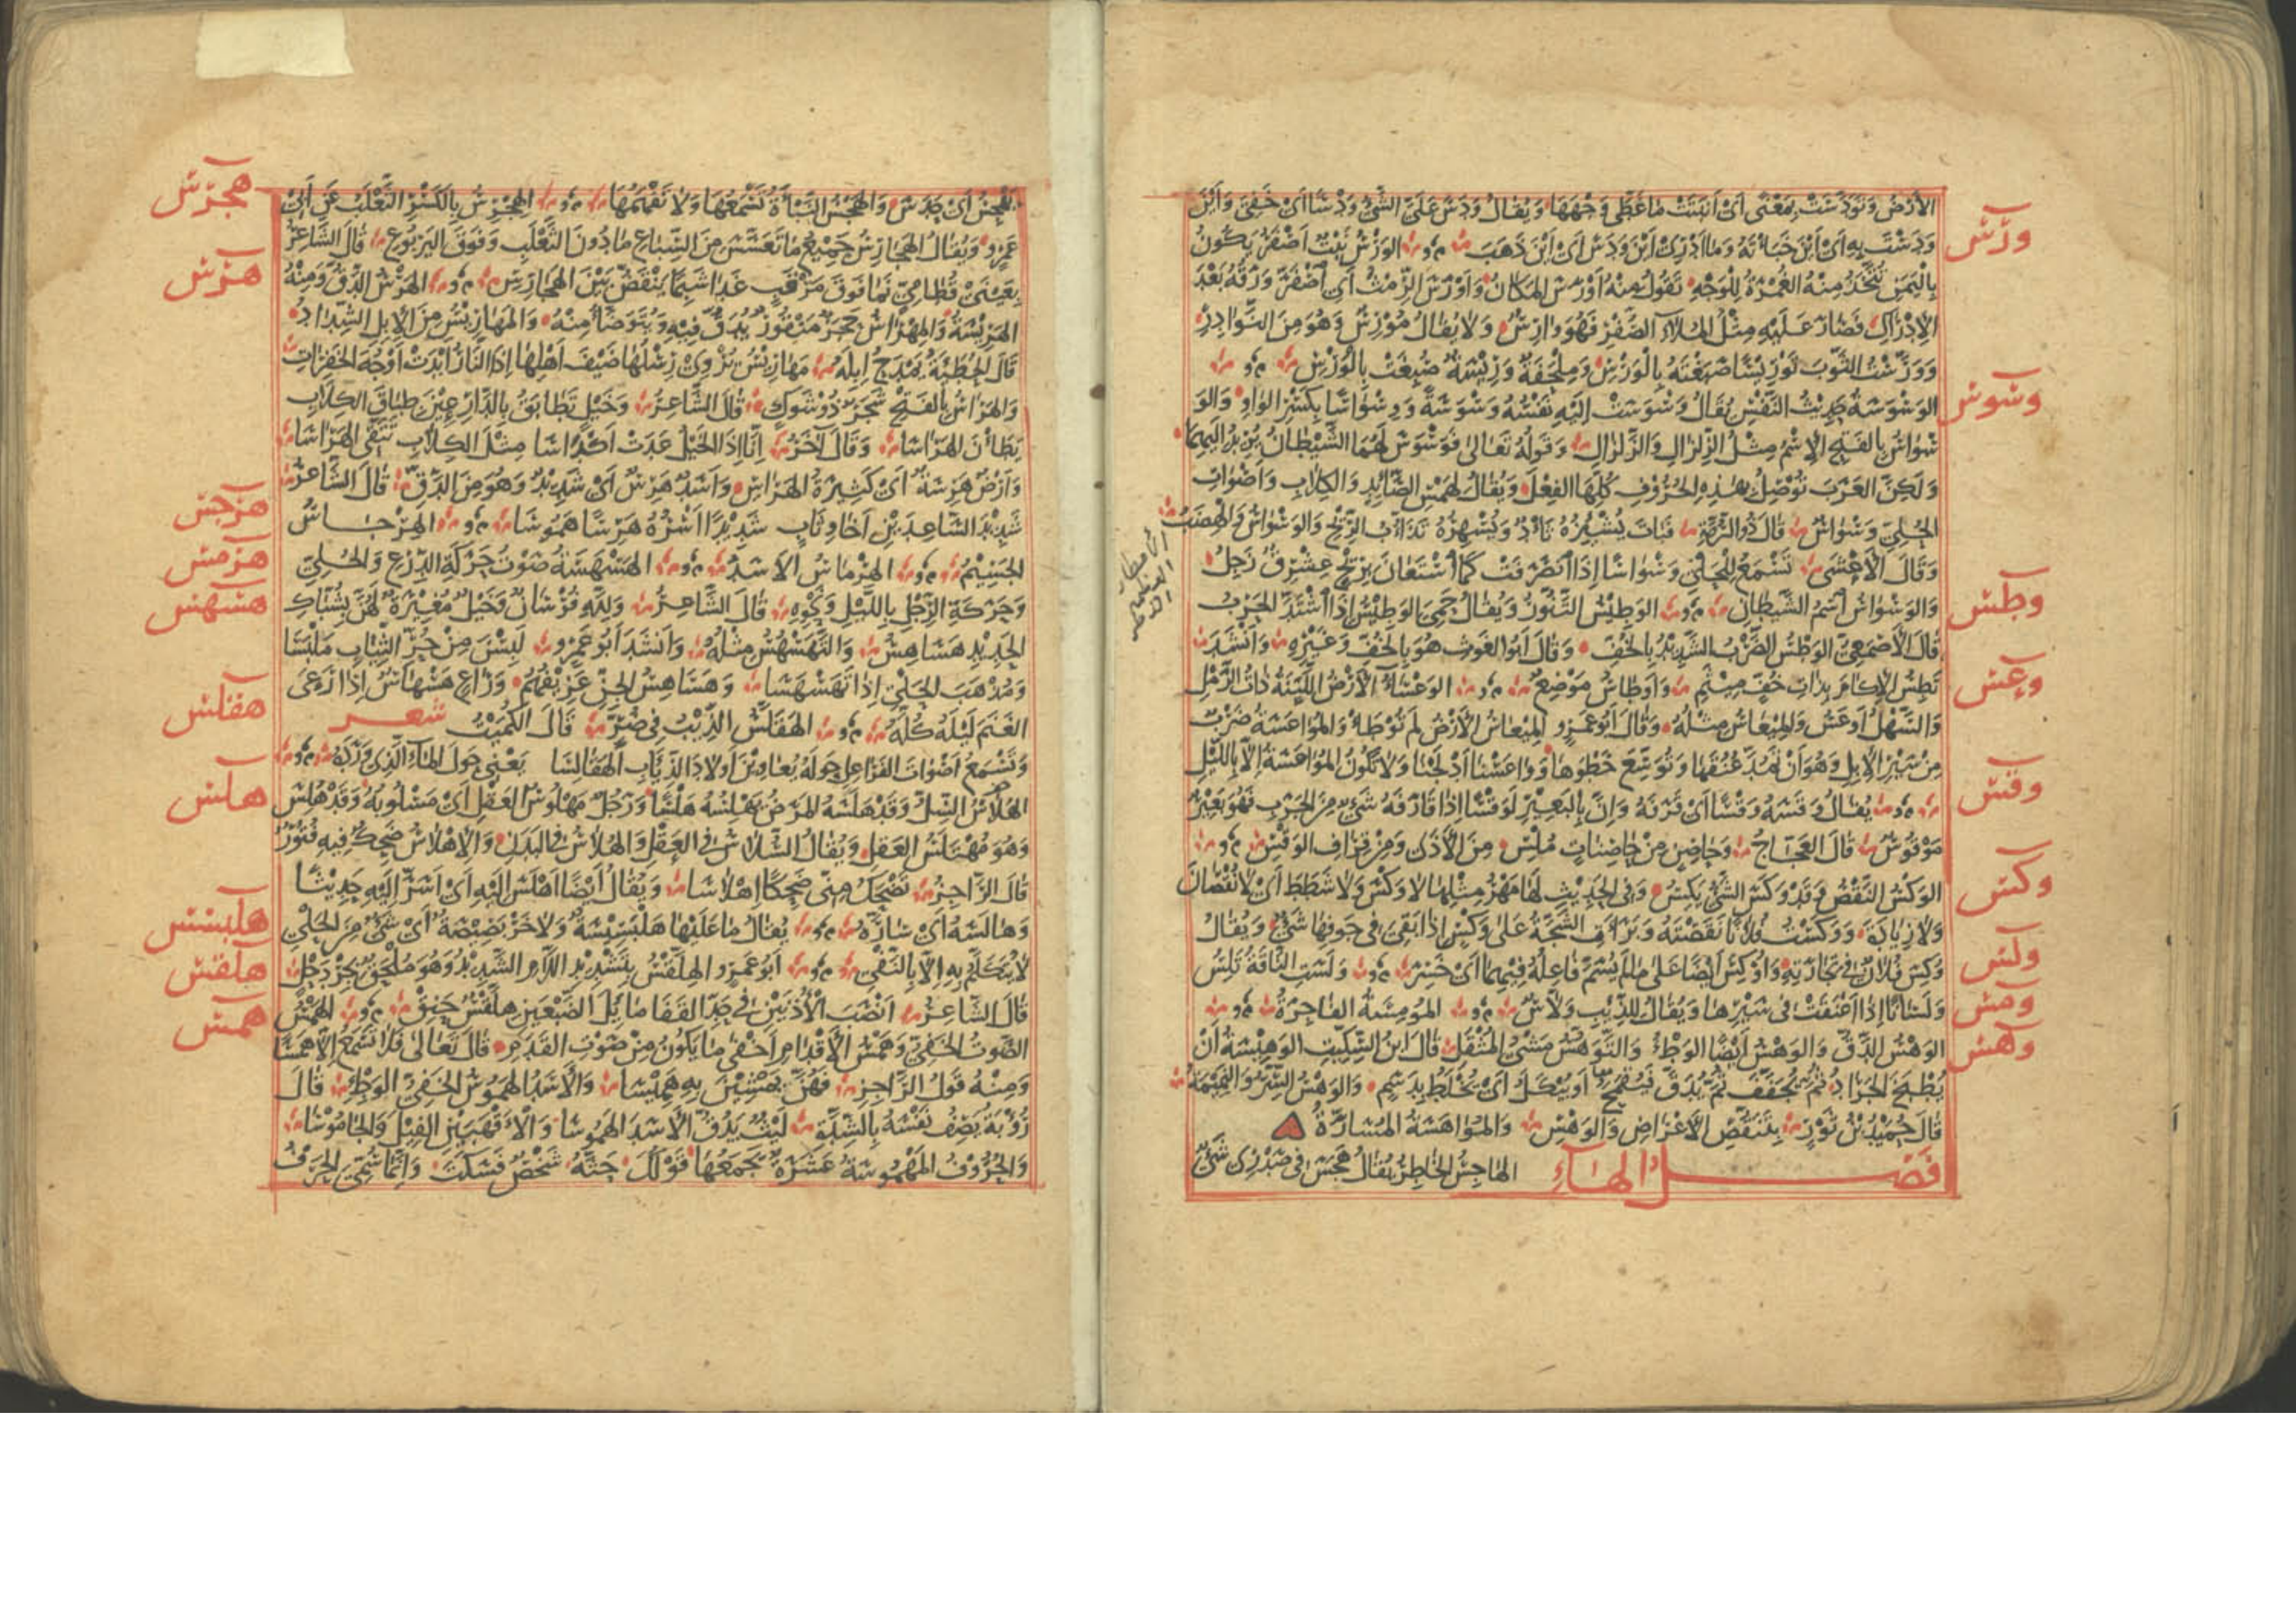 الأرض وتودست بمعنى أي أنبتت ما غطى وجهها ويقال ودس على الشيء ودسا أي خفي وأين
ودست به أي أين خبأته وما أدري أين ودس أي أين ذهب الورس نبت أصفر يكون
باليمن تتخذ منه الغمرة للوجه تقول منه أورس المكان وأورس الرمث أي اصفر ورقه بعد
الإدراك فصار عليه مثل الملاء الصفر فهو وارس ولا يقال مورس وهو من النوادر
وورست الثوب توريسا صبغته بالورس وملحفة وريسة صبغت بالورس
الوسوسة حديث النفس يقال وسوست إليه نفسه وسوسة ووسواسا بكسر الواو والو
سواس بالفتح الاسم مثل الزلزال والزلزال وقوله تعالى فوسوس لهما الشيطان يريد إليهما
ولكن العرب توصل بهذه الحروف كلها الفعل ويقال لهمس الصائد والكلاب وأصوات
الحلي وسواس قال ذو الرمة فبات يشئزه ثأد ويسهره تذاؤب الريح والوسواس والهضب
وقال الأعشى تسمع للحلي وسواسا إذا انصرفت كما استعان بريح عشرق زجل
والوسواس اسم الشيطان الوطيس التنور ويقال حمي الوطيس إذا اشتد الحرب
قال الأصمعي الوطس الضرب الشديد بالخف وقال أبو الغوث هو بالخف وغيره وأنشد
تطس الإكام بذات خف ميثم وأوطاس موضع الوعساء الأرض اللينة ذات الرمل
والسهل أوعس والميعاس مثله وقال أبو عمرو الميعاس الأرض لم توطأ والمواعسة ضرب
من سير الإبل وهو أن تمد عنقها وتوسع خطوها وواعسنا أدلجنا ولا تكون المواعسة إلا بالليل
يقال وقسه وقسا أي قرفه وإن بالبعير لوقسا إذا قارفه شيء من الجرب فهو بعير
موقوس قال العجاج وحاصن من حاصنات ملس من الأذى ومن قراف الوقس
الوكس النقص وقد وكس الشيء يكس وفي الحديث لها مهر مثلها لا وكس ولا شطط أي لا نقصان
ولا زيادة ووكست فلانا نقصته وبرأت الشجة على وكس إذا بقي في جوفها شيء ويقال
وكس فلان في تجارته وأوكس أيضا على ما لم يسم فاعله فيهما أي خسر ولست الناقة تلس
ولسانا إذا أعنقت في سيرها ويقال للذئب ولاس المومسة الفاجرة
الوهس الدق والوهس أيضا الوطء والتوهس مشي المثقل قال ابن السكيت الوهيسة أن
يطبخ الجراد ثم يجفف ثم يدق فيقمح أو يبكل أي يخلط بدسم والوهس السر والنميمة
قال حميد بن ثور بتنقص الأعراض والوهس والمواهسة المسارة
فصل الهاء الهاجس الخاطر يقال هجس في صدري شيء
ورس
وسوس
وطس
وعس
وقس
وكس
ولس
ومس
وهس
يهجس أي حدس والهجس النبأة تسمعها ولا تفهمها الهجرس بالكسر الثعلب عن أبي
عمرو ويقال الهجارس جميع ما تعسس من السباع ما دون الثعلب وفوق اليربوع قال الشاعر
بعيني قطامي نما فوق مرقب غدا شبما ينقض بين الهجارس الهرس الدق ومنه
الهريسة والمهراس حجر منقور يدق فيه ويتوضأ منه والمهاريس من الإبل الشداد
قال الحطيئة يمدح إبله مهاريس يروي رسلها ضيف أهلها إذا النار أبدت أوجه الخفرات
والهراس بالفتح شجر ذو شوك قال الشاعر وخيل تطابق بالدارعين طباق الكلاب
يطأن الهراسا وقال آخر إنا إذا الخيل عدت أكداسا مثل الكلاب تتقي الهراسا
وأرض هرسة أي كثيرة الهراس وأسد هرس أي شديد وهو من الدق قال الشاعر
شديد الساعدين أخا وثاب شديدا أسره هرسا هموسا الهرجاس
الجسيم الهرماس الأسد الهسهسة صوت حركة الدرع والحلي
وحركة الرجل بالليل ونحوه قال الشاعر ولله فرسان وخيل مغيرة لهن بشباك
الحديد هساهس والتهسهس مثله وأنشد أبو عمرو لبسن من حر الثياب ملبسا
ومذهب الحلي إذا تهسهسا وهساهس الجن عزيفهم وراع هسهاس إذا رعى
الغنم ليله كله الهقلس الذئب في ضر قال الكميت شعر
وتسمع أصوات الفراعل حوله يعاوين أولاد الذئاب الهقالسا يعني حول الماء الذي ورده
الهلاس السل وقد هلسه المرض يهلسه هلسا ورجل مهلوس العقل أي مسلوبه وقد هلس
وهو مهتلس العقل ويقال السلاس في العقل والهلاس في البدن والإهلاس ضحك فيه فتور
قال الراجز تضحك مني ضحكا إهلاسا ويقال أيضا أهلس إليه أي أسر إليه حديثا
وهالسه أي ساره يقال ما عليها هلبسيسة ولا خربصيصة أي شيء من الحلي
لا يتكلم به إلا بالنفي أبو عمرو الهلقس بتشديد اللام الشديد وهو ملحق بجردحل
قال الشاعر أنصب الأذنين في حد القفا مائل الضبعين هلقس حنق الهمس
الصوت الخفي وهمس الأقدام أخفى ما يكون من صوت القدم قال تعالى فلا تسمع إلا همسا
ومنه قول الراجز فهن يمشين به هميسا والأسد الهموس الخفي الوطء قال
رؤبة يصف نفسه بالشدة ليث يدق الأسد الهموسا والأقهبين الفيل والجاموسا
والحروف المهموسة عشرة يجمعها قولك حثه شخص فسكت وإنما سمي الحرف
هجرس
هرس
هرجس
هرمس
هسهس
هقلس
هلس
هلبسس
هلقس
همس